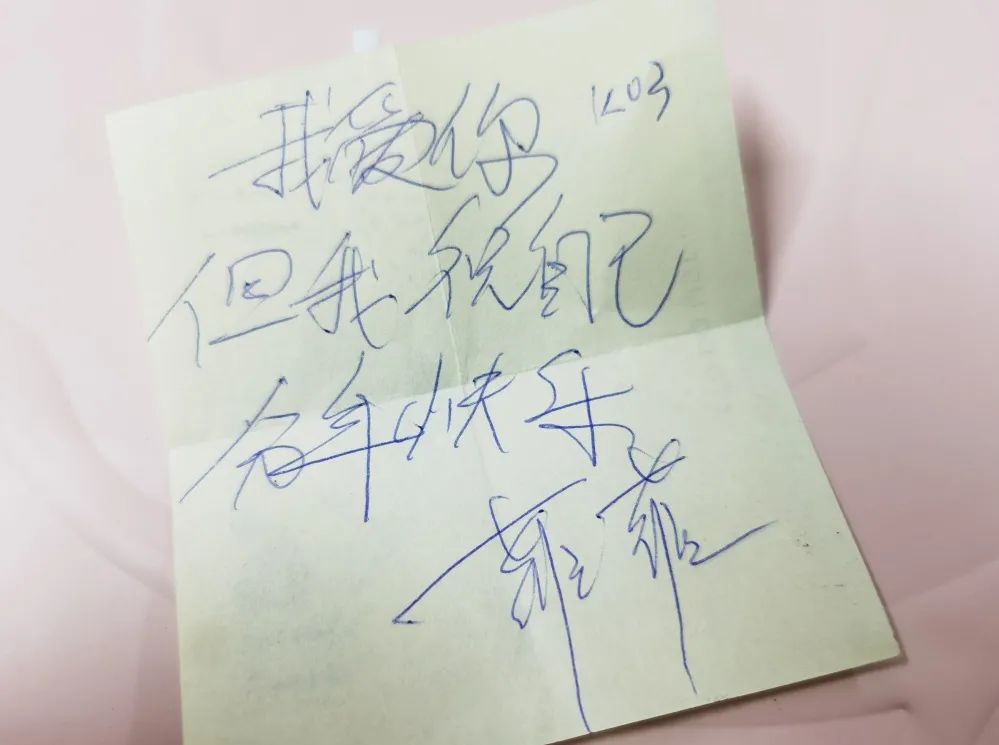 我爱你 K03
但我祝自己
多年快乐
菲菲